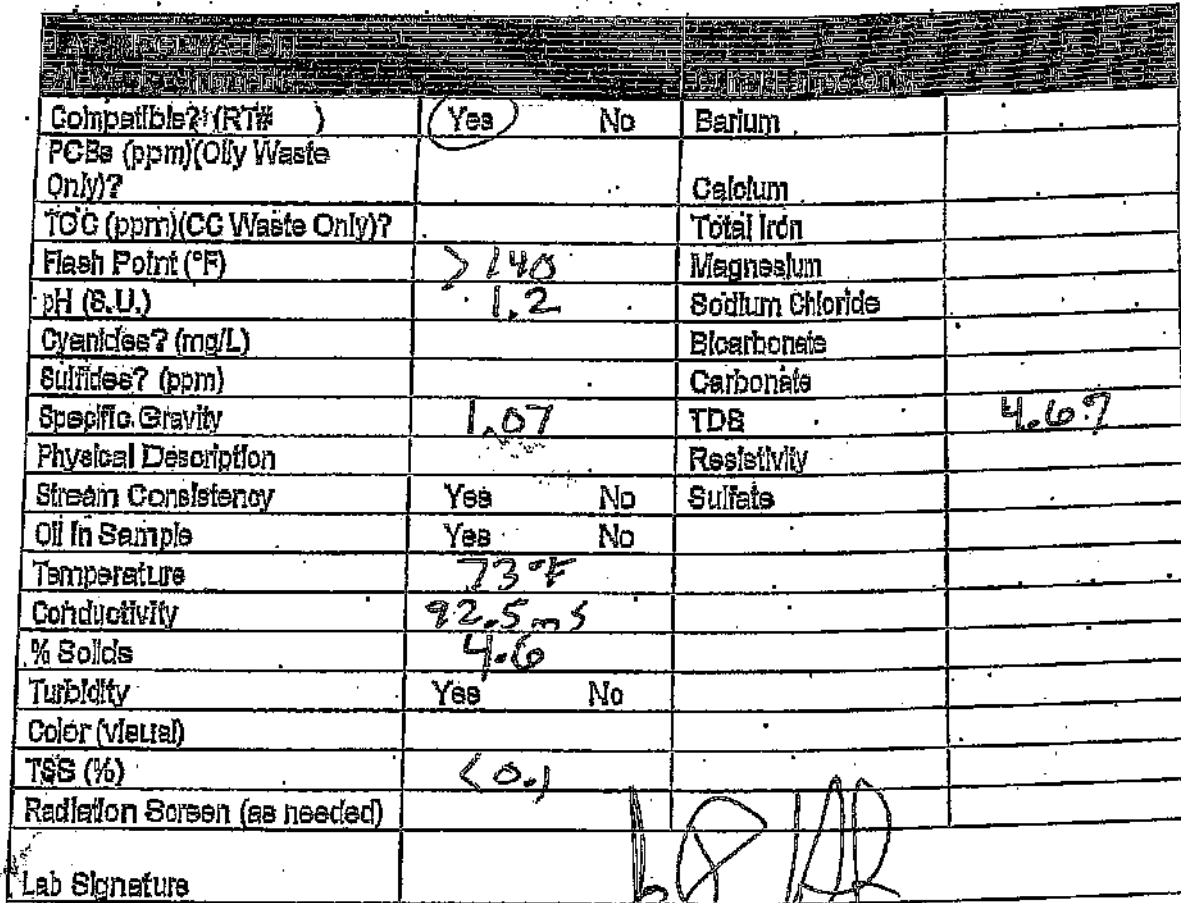 LAB INFORMATION
All Waste Shipments
Compatible? (RT# ) Yes No Barium
PCBs (ppm)(Oily Waste
Only)? Calcium
TOC (ppm)(CC Waste Only)? Total Iron
Flash Point (°F) >140 Magnesium
pH (S.U.) 1.2 Sodium Chloride
Cyanides? (mg/L) Bicarbonate
Sulfides? (ppm) Carbonate
Specific Gravity 1.07 TDS
Physical Description Resistivity
Stream Consistency Yes No Sulfate
Oil in Sample Yes No
Temperature 73°F
Conductivity 92.5 mS
% Solids 4.6
Turbidity Yes No
Color (visual)
TSS (%) <0.1
Radiation Screen (as needed)
Lab Signature